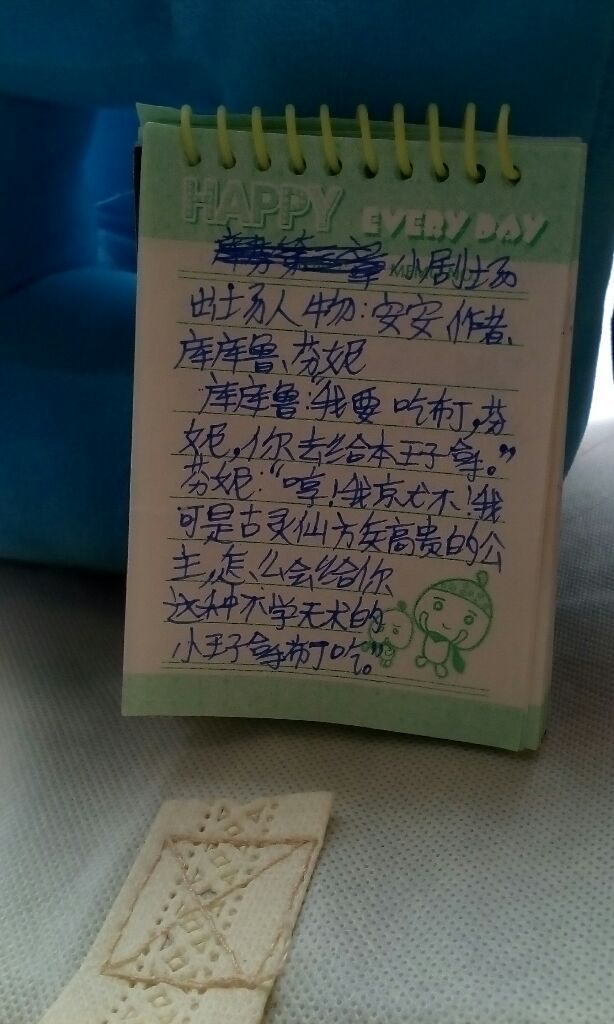 HAPPY EVERY DAY
小剧场
出场人物:安安作者、
库库鲁、芬妮
库库鲁:“我要吃布丁,芬
妮,你去给本王子拿。”
芬妮:“哼!我就不!我
可是古灵仙族高贵的公
主,怎么会给你
这种不学无术的
小王子拿布丁吃。”